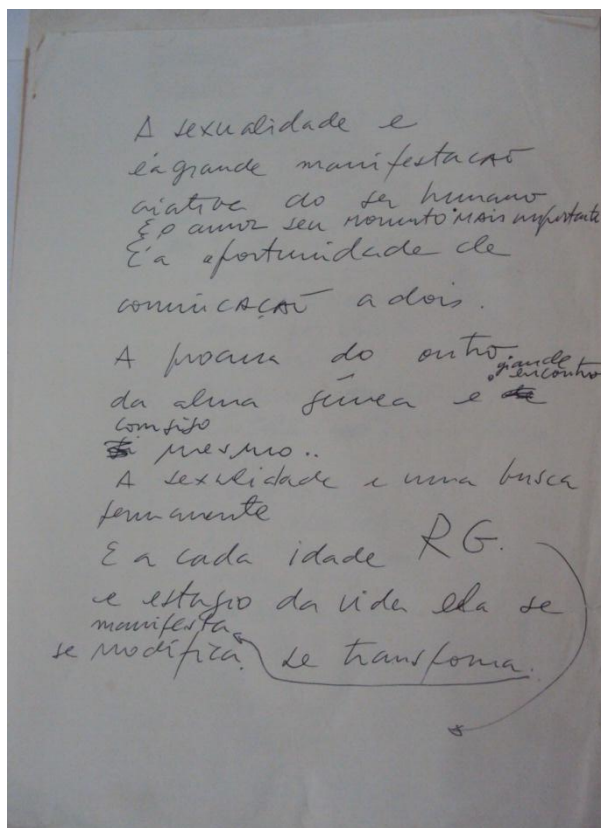 A sexualidade e
é a grande manifestação
criativa do ser humano
E o amor seu momento mais importante
É a oportunidade de
comunicação a dois.
A procura do outro, grande
da alma gêmea e o encontro
consigo
mesmo..
A sexualidade e uma busca
permanente
E a cada idade RG.
e estagio da vida ela se
manifesta
se modifica, se transforma.